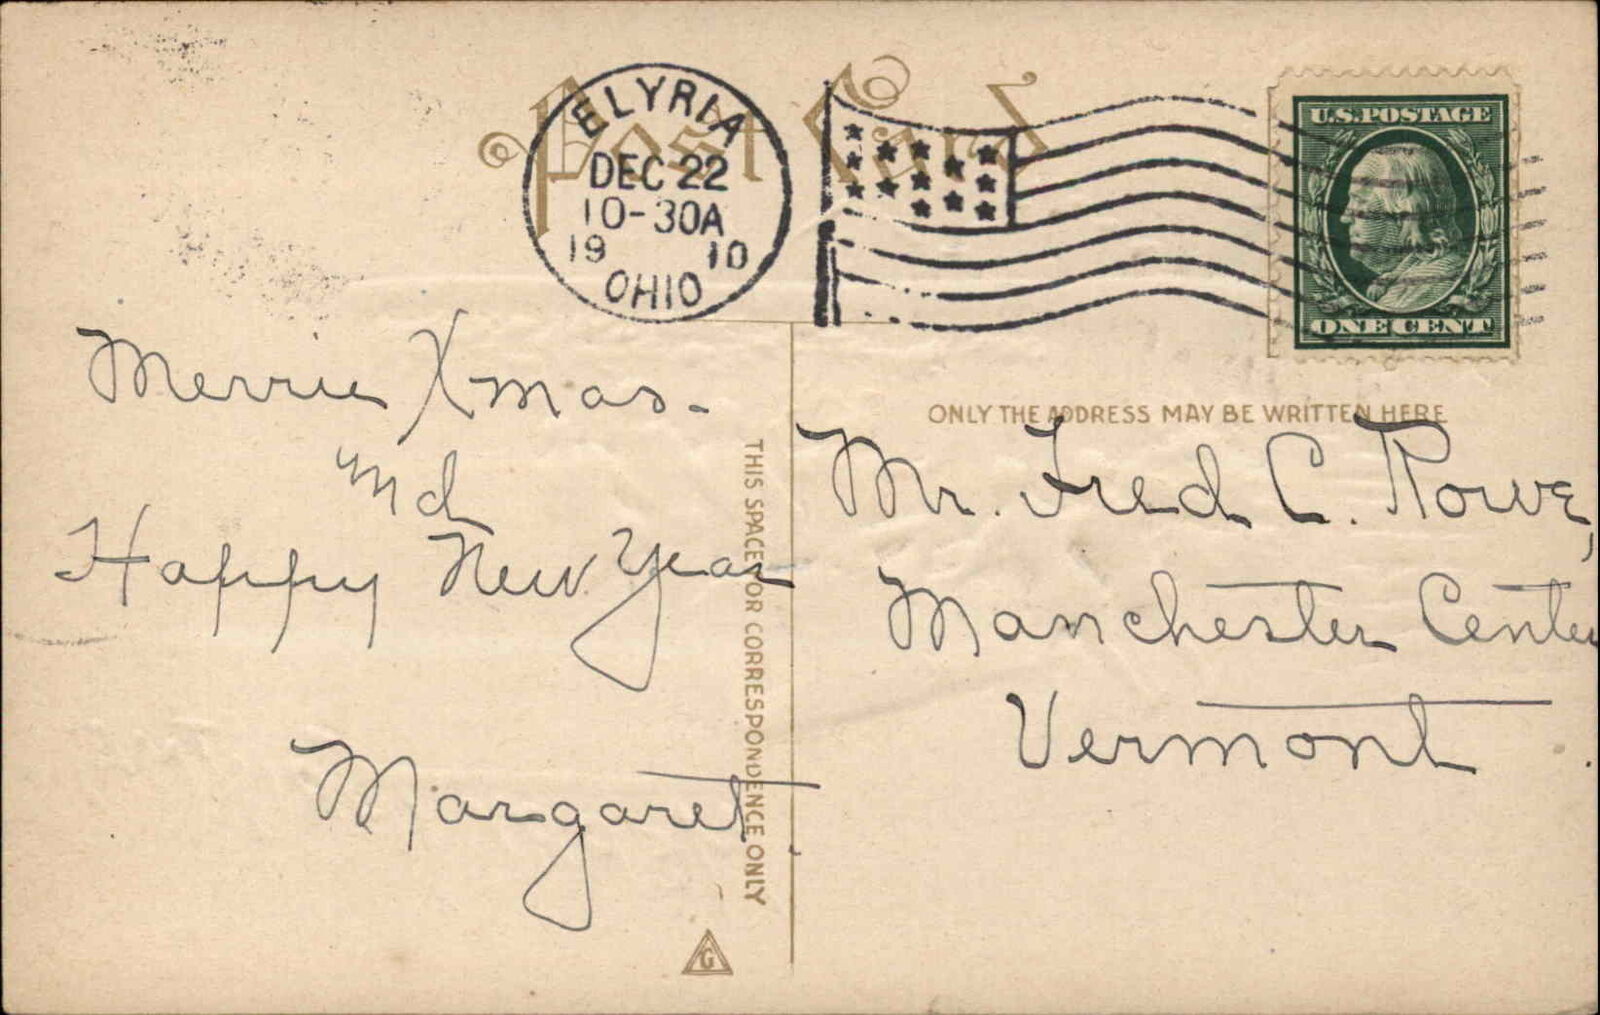 Post Card
ELYRIA
DEC 22
10-30A
19 10
OHIO
U.S. POSTAGE
ONE CENT
Merrie Xmas-
and
Happy New Year
Margaret.
THIS SPACE FOR CORRESPONDENCE ONLY
G
ONLY THE ADDRESS MAY BE WRITTEN HERE
Mr. Fred C. Rowe,
Manchester Center
Vermont